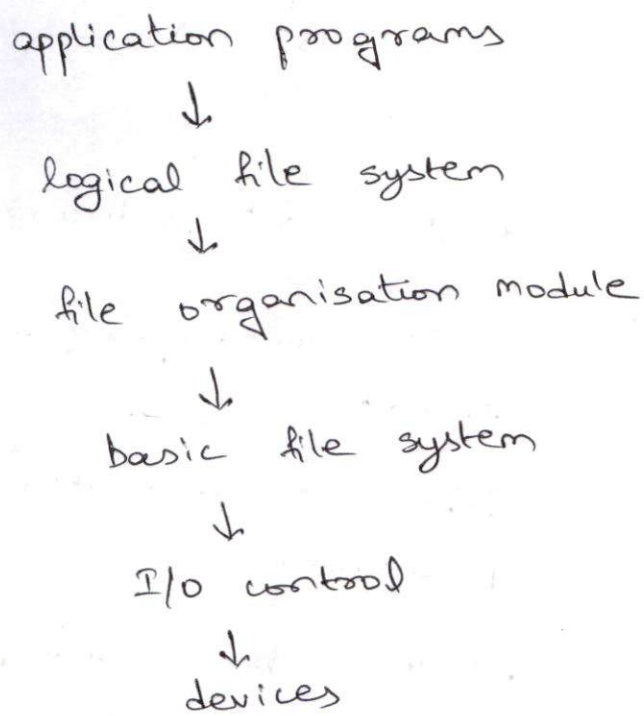 application programs
↓
logical file system
↓
file organisation module
↓
basic file system
↓
I/O control
↓
devices